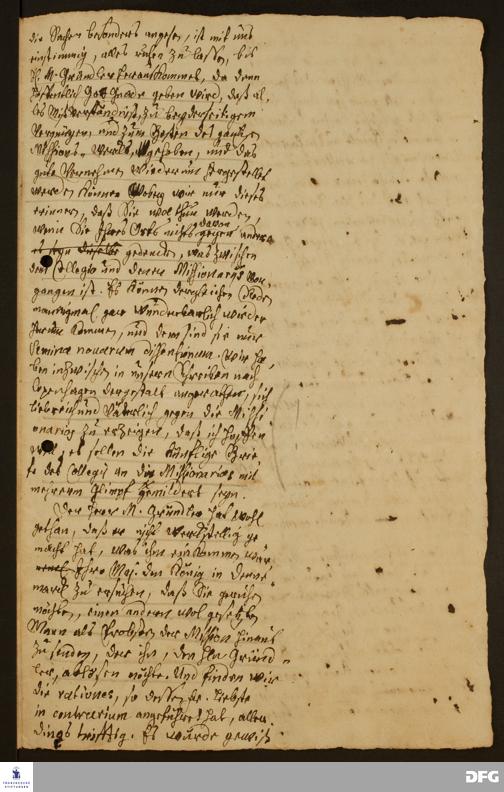 die Sache besonders angesehen, ist mit uns
einstimmig, alles ruhen zu lassen, bis
H. M. Gründler heraus kommet, da denn
hoffentlich Gott Gnade geben wird, daß al-
les Mißverständniß, zu beyderseitigem
Vergnügen, und zum Besten des gantzen
Missions-Wercks, gehoben, und das
gute Vernehmen wiederum hergestellet
werden könne. Wobey wir nur dieses
erinnern, daß Sie wol thun werden,
wenn Sie Ihres Orts nichts davon gegen andere
gedencken, was zwischen
dem Collegio und denen Missionariis vor-
gangen ist. Es können dergleichen Reden
manchmal gar wunderbarlich wieder
herum kommen, und denn sind sie nur
Semina novarum dissensionum. Wir ha-
ben inzwischen in unserm Schreiben nach
Copenhagen dergestalt angerathen, sich
liebreich und väterlich gegen die Missi-
onarios zu erzeigen, daß ich hoffen
will, es sollen die künftige Brie-
fe des Collegii an die Missionarios mit
mehrerm Glimpf gemildert seyn.
Der Herr M. Gründler hat wohl
gethan, daß er nicht werckstellig ge-
macht hat, was ihm einkommen war,
Ihro Maj. den König in Denne-
marck zu ersuchen, daß Sie geruhen
möchten, einen andern wol gesetzten
Mann als Probsten der Mission hinaus
zu senden, der ihn, den Hn Gründ-
ler, ablösen möchte. Und finden wir
die rationes, so derselbe
in contrarium angeführet hat, aller-
dings trifftig. Es würde gewiß
FRANCKESCHE STIFTUNGEN
DFG